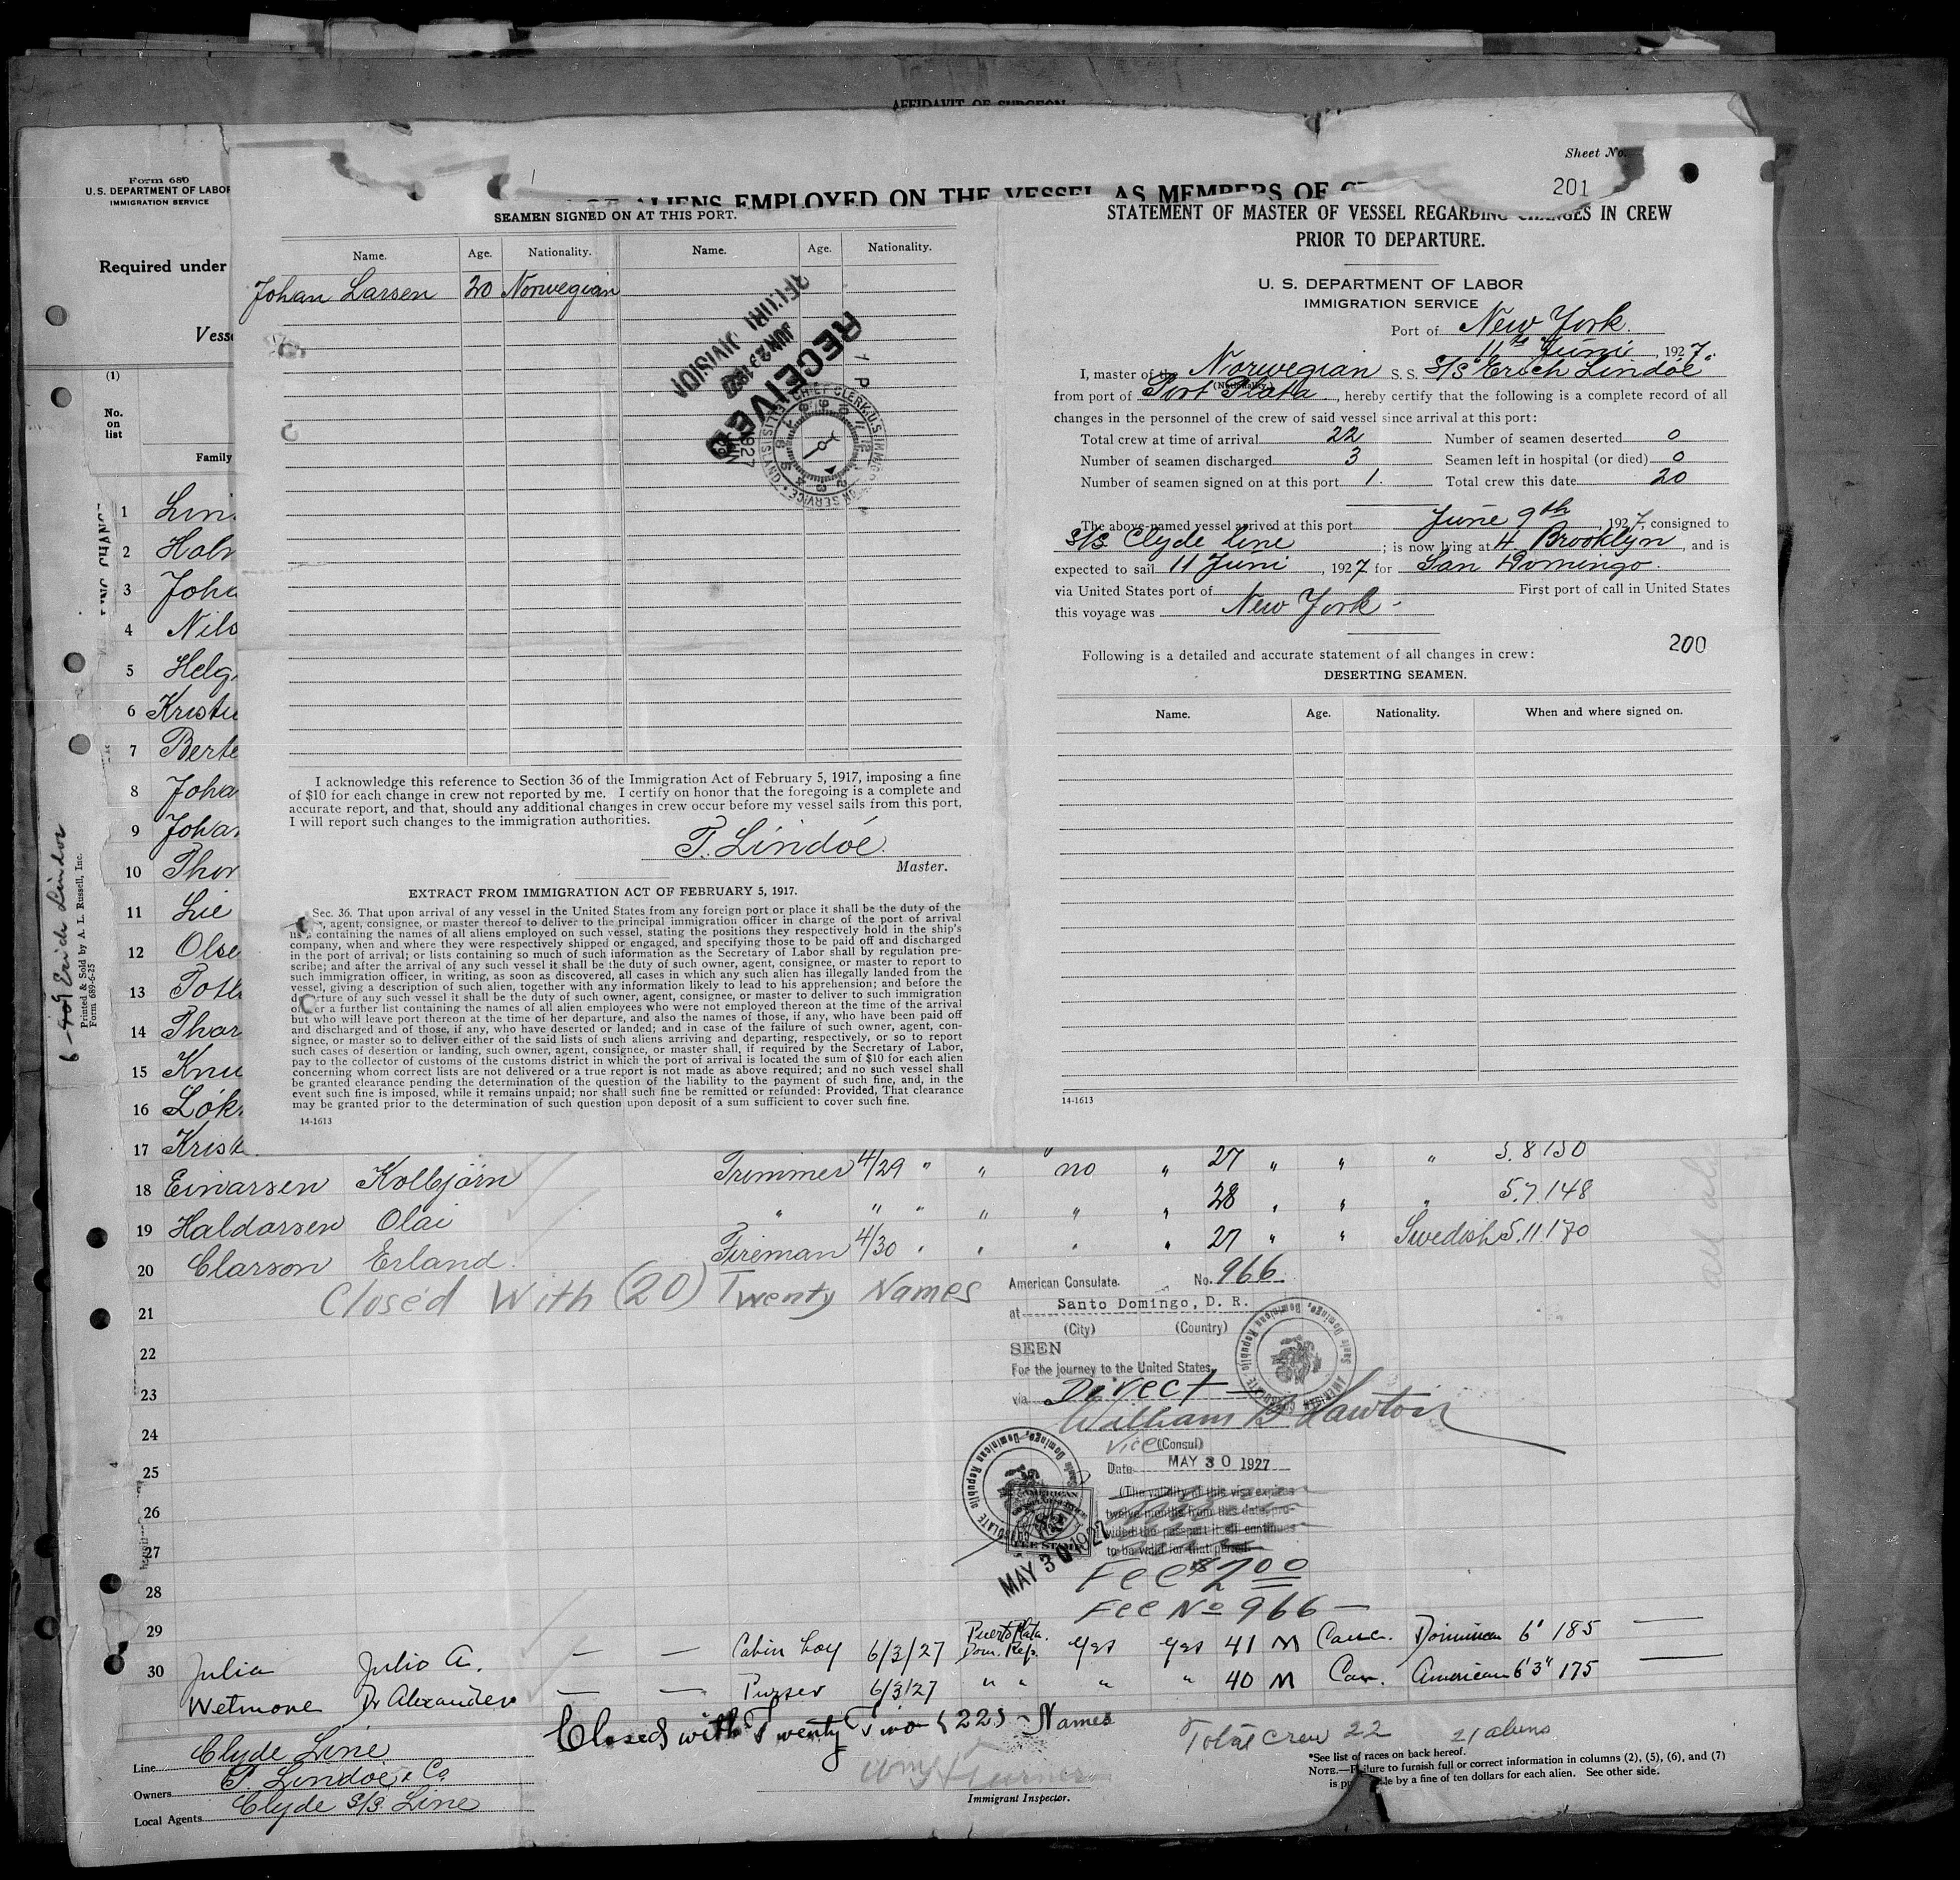 AFFIDAVIT OF SURGEON
Form 680
U. S. DEPARTMENT OF LABOR
IMMIGRATION SERVICE
Required under
(1)
No.
on
list
Family
ALIENS EMPLOYED ON THE VESSEL AS MEMBERS OF
Sheet No.
201
SEAMEN SIGNED ON AT THIS PORT.
Name. Age. Nationality. Name. Age. Nationality.
Johan Larsen 20 Norwegian
RECEIVED
JUN 29 1927
DIVISION
I acknowledge this reference to Section 36 of the Immigration Act of February 5, 1917, imposing a fine
of $10 for each change in crew not reported by me. I certify on honor that the foregoing is a complete and
accurate report, and that, should any additional changes in crew occur before my vessel sails from this port,
I will report such changes to the immigration authorities.
T. Lindóe.
Master.
EXTRACT FROM IMMIGRATION ACT OF FEBRUARY 5, 1917.
Sec. 36. That upon arrival of any vessel in the United States from any foreign port or place it shall be the duty of the
agent, consignee, or master thereof to deliver to the principal immigration officer in charge of the port of arrival
containing the names of all aliens employed on such vessel, stating the positions they respectively hold in the ship's
company, when and where they were respectively shipped or engaged, and specifying those to be paid off and discharged
in the port of arrival; or lists containing so much of such information as the Secretary of Labor shall by regulation pre-
scribe; and after the arrival of any such vessel it shall be the duty of such owner, agent, consignee, or master to report to
such immigration officer, in writing, as soon as discovered, all cases in which any such alien has illegally landed from the
vessel, giving a description of such alien, together with any information likely to lead to his apprehension; and before the
departure of any such vessel it shall be the duty of such owner, agent, consignee, or master to deliver to such immigration
officer a further list containing the names of all alien employees who were not employed thereon at the time of the arrival
but who will leave port thereon at the time of her departure, and also the names of those, if any, who have been paid off
and discharged and of those, if any, who have deserted or landed; and in case of the failure of such owner, agent, con-
signee, or master so to deliver either of the said lists of such aliens arriving and departing, respectively, or so to report
such cases of desertion or landing, such owner, agent, consignee, or master shall, if required by the Secretary of Labor,
pay to the collector of customs of the customs district in which the port of arrival is located the sum of $10 for each alien
concerning whom correct lists are not delivered or a true report is not made as above required; and no such vessel shall
be granted clearance pending the determination of the question of the liability to the payment of such fine, and, in the
event such fine is imposed, while it remains unpaid; nor shall such fine be remitted or refunded: Provided, That clearance
may be granted prior to the determination of such question upon deposit of a sum sufficient to cover such fine.
14-1613
STATEMENT OF MASTER OF VESSEL REGARDING CHANGES IN CREW
PRIOR TO DEPARTURE.
U. S. DEPARTMENT OF LABOR
IMMIGRATION SERVICE
Port of New York.
11th Juni, 1927.
I, master of the Norwegian S. S. S/S Erich Lindóe
(Nationality)
from port of Port Plata, hereby certify that the following is a complete record of all
changes in the personnel of the crew of said vessel since arrival at this port:
Total crew at time of arrival 22 Number of seamen deserted 0
Number of seamen discharged 3 Seamen left in hospital (or died) 0
Number of seamen signed on at this port 1. Total crew this date 20
The above-named vessel arrived at this port June 9th, 1927, consigned to
S/S Clyde line; is now lying at 4 Brooklyn, and is
expected to sail 11 Juni, 1927 for San Domingo.
via United States port of First port of call in United States
this voyage was New York -
200
Following is a detailed and accurate statement of all changes in crew:
DESERTING SEAMEN.
Name. Age. Nationality. When and where signed on.
14-1613
Printed & Sold by A. L. Russell, Inc.
Form 689-6-25
1
2
3
4 Nils
5
6
7
8
9
10
11 Lie
12
13
14
15
16
17 5.8 150
18 Einarsen Kolbjørn Trimmer 4/29 " " no " 27 " " "
19 Haldorsen Olai " " " " " " 28 " " " 5.7.148
20 Clarson Erland. Fireman 4/30 " " " " 27 " " Swedish 5.11.170
21 Closed With (20) Twenty Names
22
23
24
25
26
27
28
29
30
American Consulate. No. 966
at Santo Domingo, D. R.
(City) (Country)
SEEN
For the journey to the United States
via Direct
William B Lawton
Vice (Consul)
Date MAY 30 1927
(The validity of this visa expires
twelve months from this date, pro-
vided the passport itself continues
to be valid for that period.
MAY 30 1927
Fee $2.00
Fee No 966 —
Julia Julio A. — — Cabin boy 6/3/27 Puerto Plata. Dom. Rep. Yes Yes 41 M Cauc. Dominican 6' 185 —
Wetmore Dr Alexander — — Purser 6/3/27 " " " " 40 M Cau. American 6'3" 175 —
Closed with Twenty Two (22) Names
Total Crew 22 21 aliens
Line Clyde Line
Owners T. Lindóe & Co
Local Agents Clyde S/S Line
Immigrant Inspector.
*See list of races on back hereof.
NOTE.—Failure to furnish full or correct information in columns (2), (5), (6), and (7)
is punishable by a fine of ten dollars for each alien. See other side.